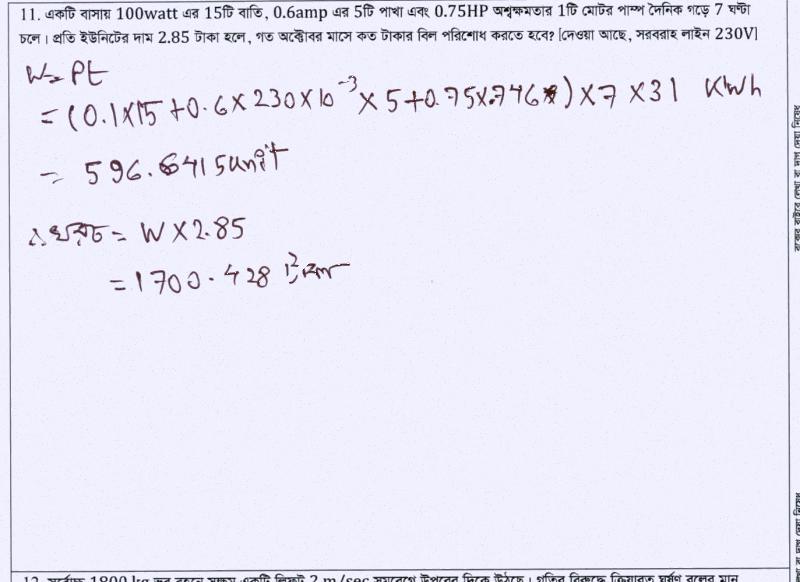 11. একটি বাসায় 100watt এর 15টি বাতি, 0.6amp এর 5টি পাখা এবং 0.75HP অশ্বক্ষমতার 1টি মোটর পাম্প দৈনিক গড়ে 7 ঘণ্টা
চলে। প্রতি ইউনিটের দাম 2.85 টাকা হলে, গত অক্টোবর মাসে কত টাকার বিল পরিশোধ করতে হবে? [দেওয়া আছে, সরবরাহ লাইন 230V]
W = Pt
= (0.1×15 + 0.6×230×10⁻³ × 5 + 0.75×.746) × 7 × 31 KWh
= 596.6415 unit
∴ খরচ = W × 2.85
= 1700.428
12. সর্বোচ্চ 1800 kg ভর বহনে সক্ষম একটি লিফট 2 m/sec সমবেগে উপরের দিকে উঠছে। গতির বিরুদ্ধে ক্রিয়ারত ঘর্ষণ বলের মান